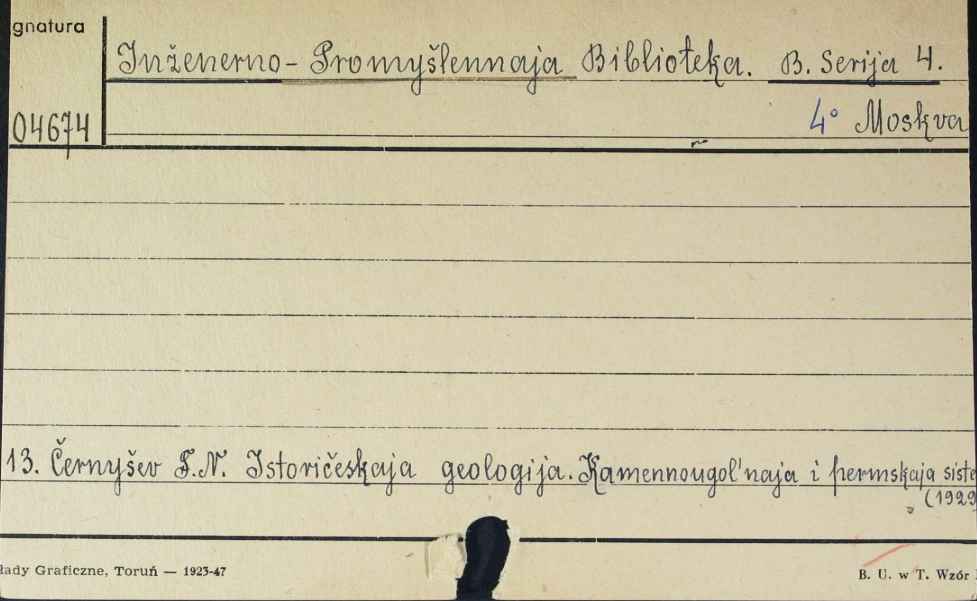 gnatura
Inženerno-Promyšlennaja Biblioteka. B. Serija 4.
04674
4° Moskva
13. Černyšev F.N. Istoričeskaja geologija. Kamennougol'naja i permskaja siste
(1929
łady Graficzne, Toruń — 1923-47
B. U. w T. Wzór